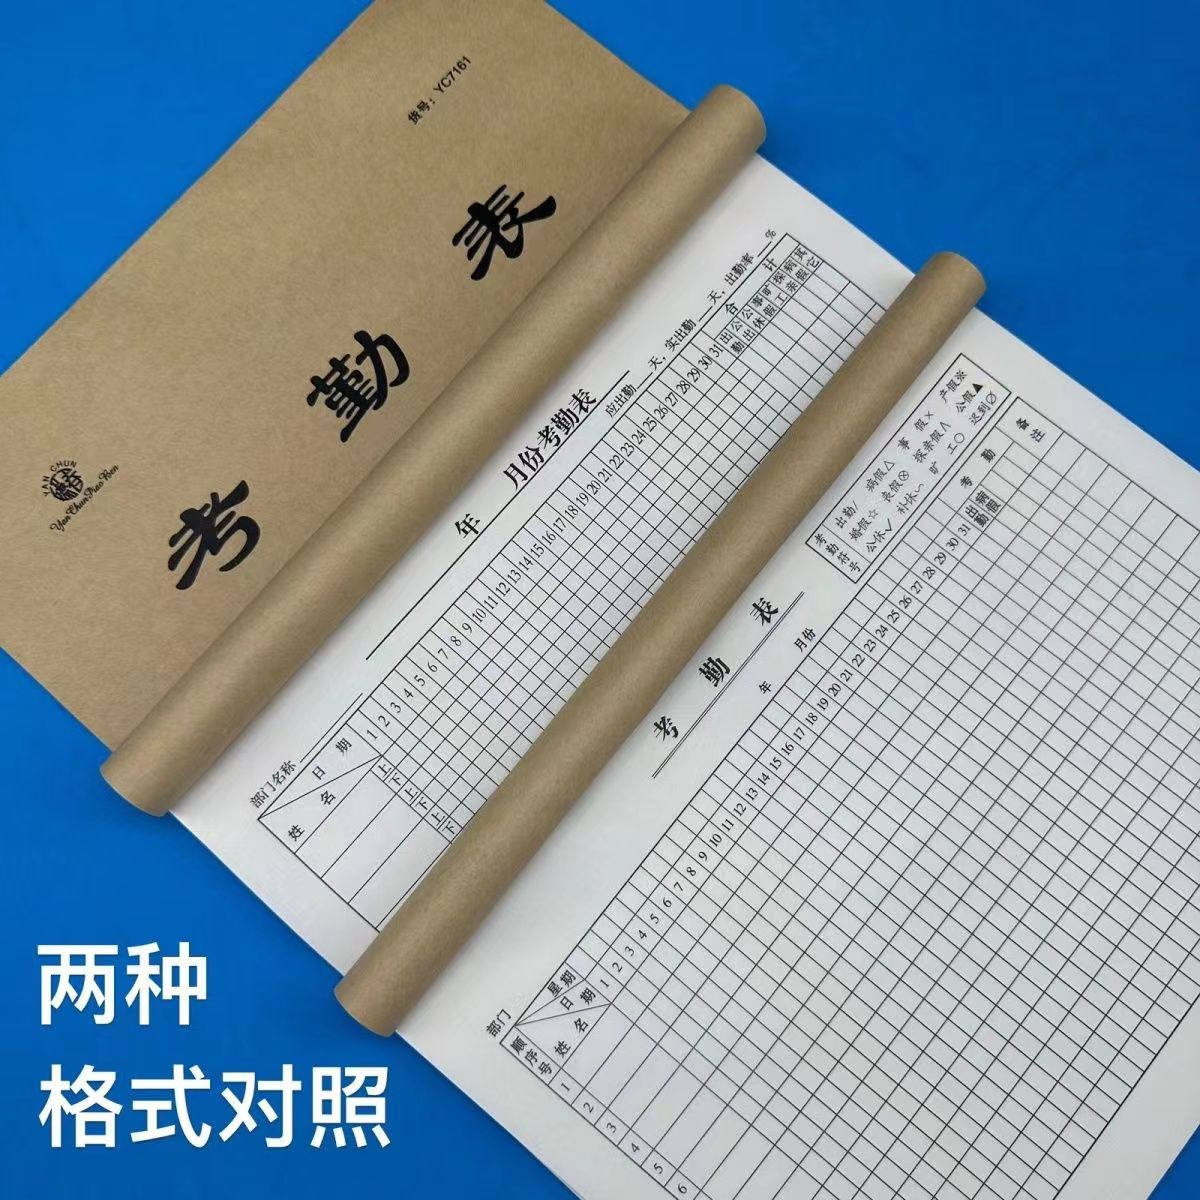 货号：YC7161
考勤表
YAN CHUN
Yan Chun Piao Ben
年 月份考勤表
部门名称 应出勤 天，实出勤 天，出勤率 %
日期 1 2 3 4 5 6 7 8 9 10 11 12 13 14 15 16 17 18 19 20 21 22 23 24 25 26 27 28 29 30 31 合计
姓名 出勤 公出 公休 事假 旷工 探亲 病假 其它
上
下
上
下
上
下
考勤表
年 月份
考勤符号 出勤/ 病假△ 事假× 产假※
婚假☆ 丧假⊗ 探亲假∧ 公假▲
公休✓ 补休〰 旷工○ 迟到∅
部门
顺序号 星期 日期 姓名 1 2 3 4 5 6 7 8 9 10 11 12 13 14 15 16 17 18 19 20 21 22 23 24 25 26 27 28 29 30 31 考勤 备注
出勤 病假
1
2
3
4
5
6
两种
格式对照